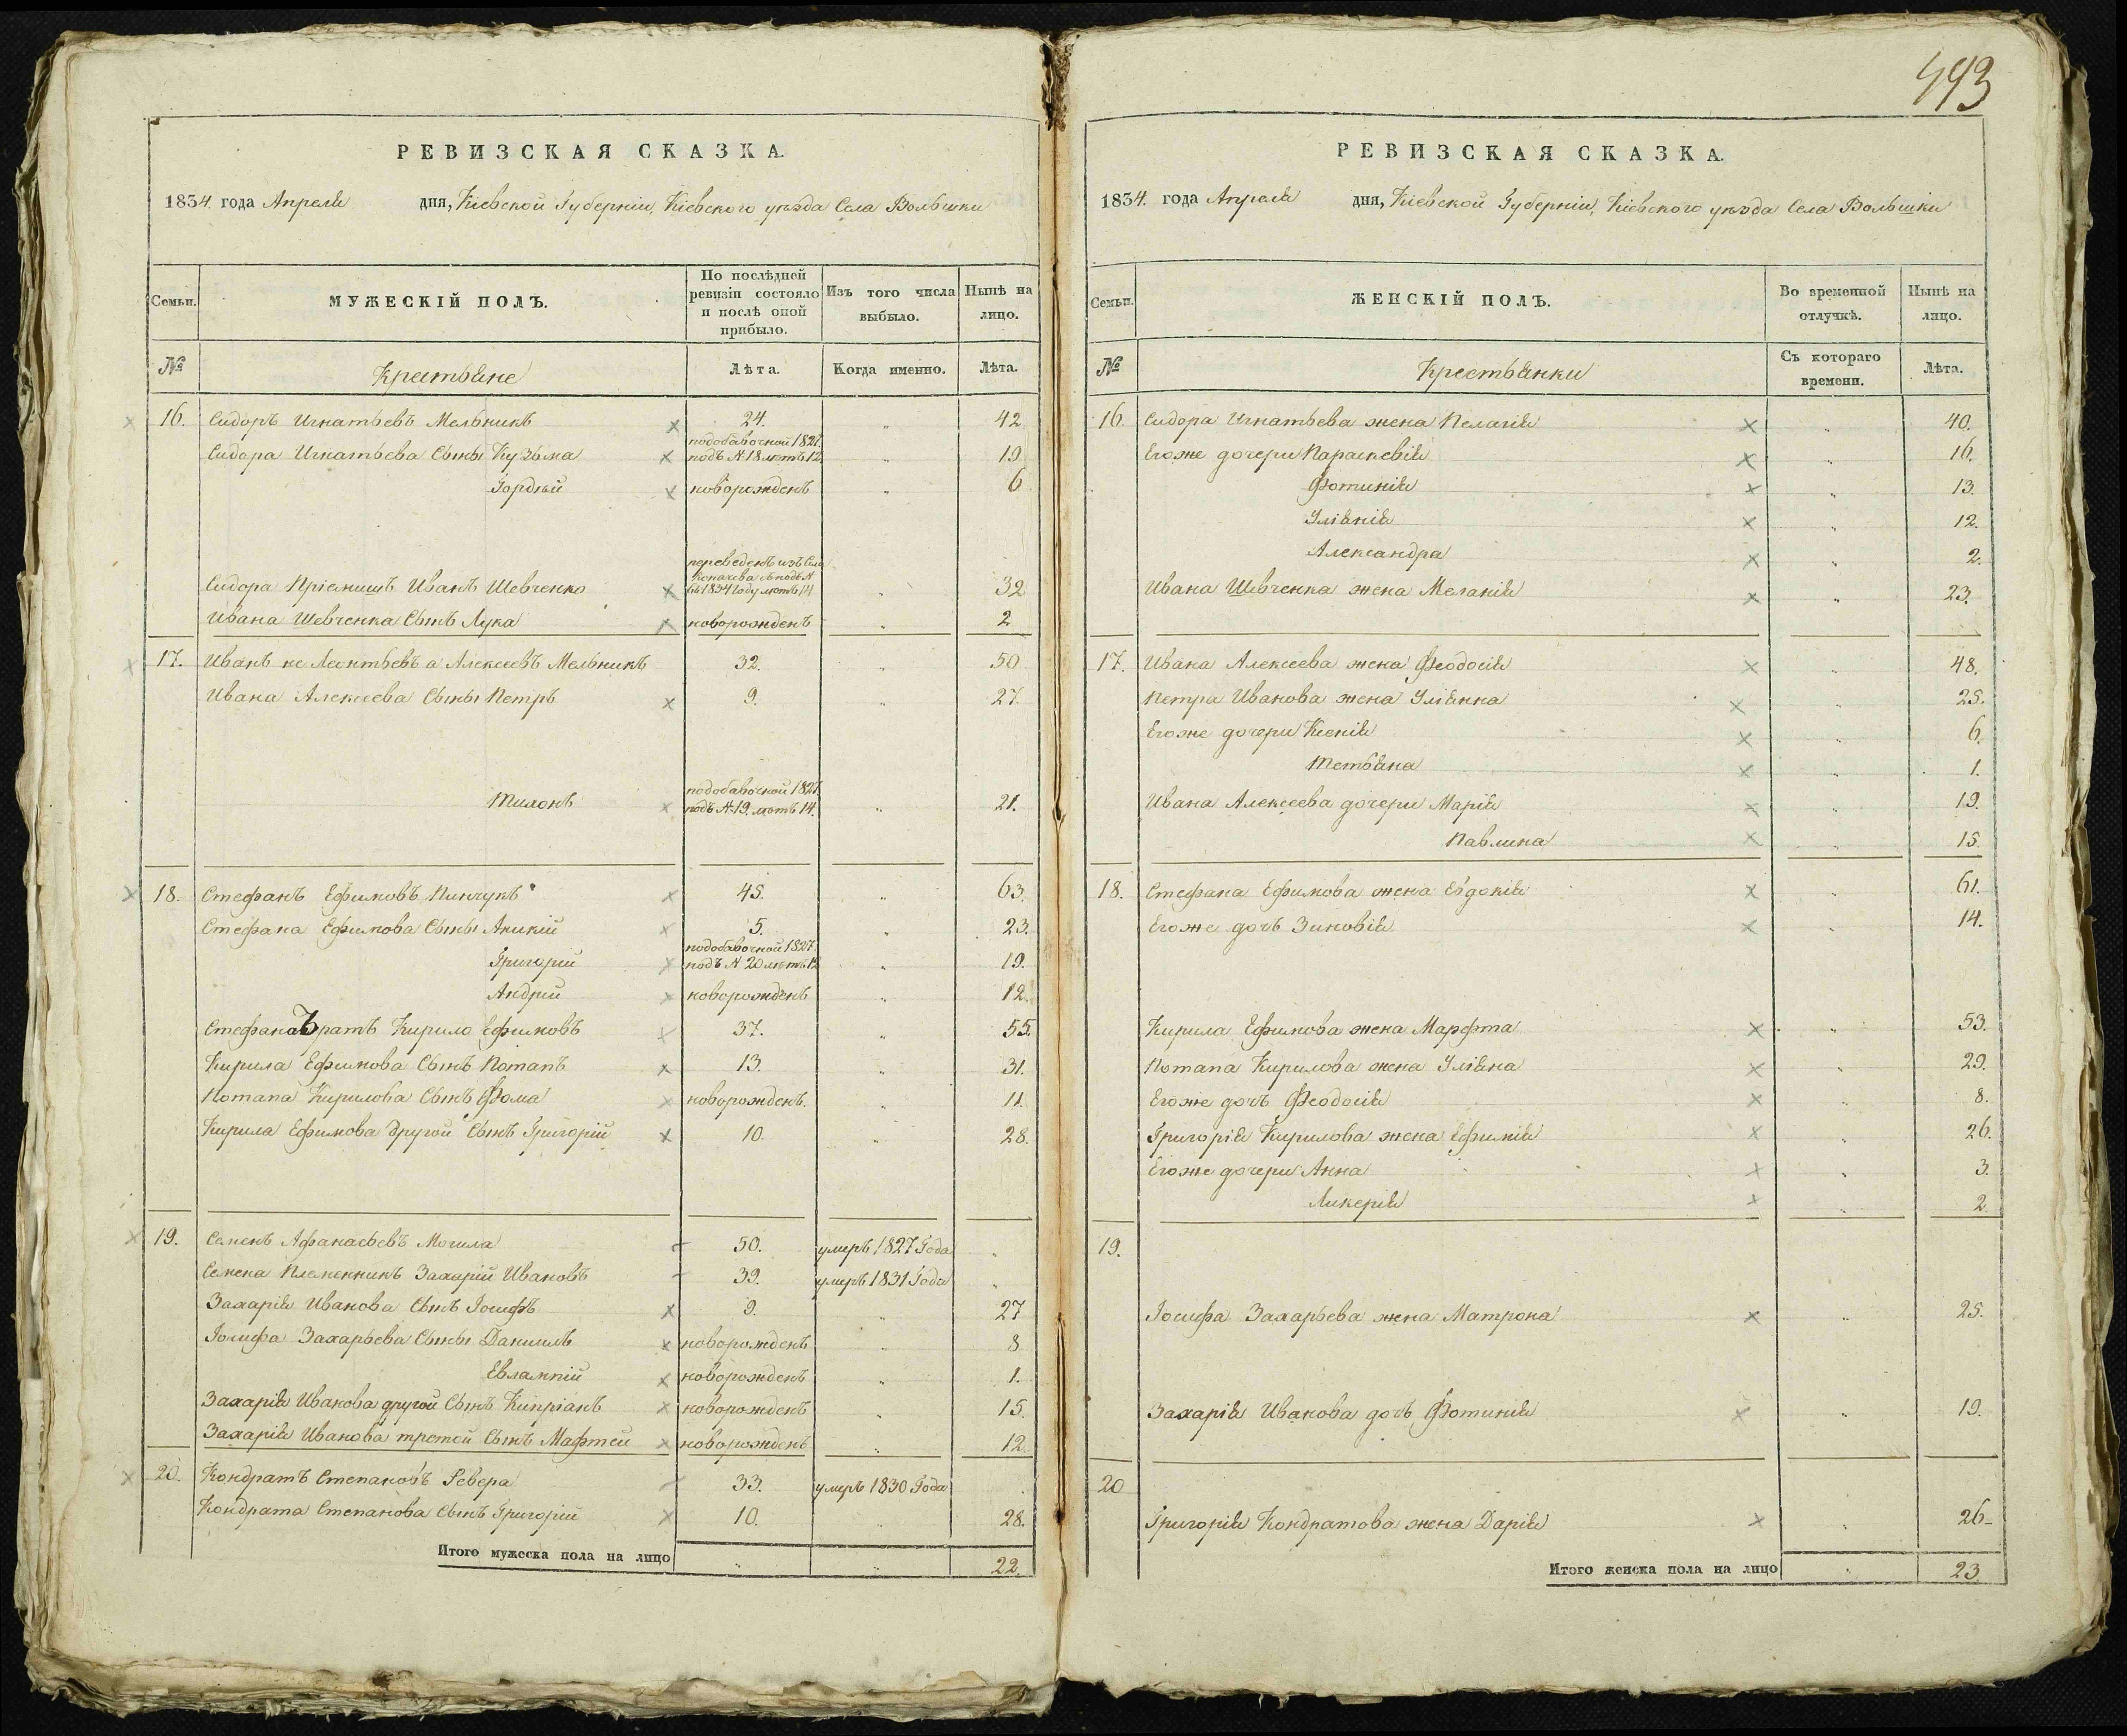 493
РЕВИЗСКАЯ СКАЗКА.
1834. года Апреля дня, Кіевской Губерніи, Кіевского уезда Села
Семьи. МУЖЕСКІЙ ПОЛЪ. По послѣдней ревизіи состояло и послѣ оной прибыло. Изъ того числа выбыло. Нынѣ на лицо.
№ Крестьяне Лѣта. Когда именно. Лѣта.
16. Сидоръ Игнатьевъ Мельникъ 24. „ 42
подобавочной 1827.
Сидора Игнатьева Сыны Кузьма подъ № 18 летъ 12 „ 19
Гордѣй новорожденъ „ 6
переведенъ изъ Села
подъ №
Сидора Пріемишъ Иванъ Шевченко 1834 Году летъ 14 „ 32
Ивана Шевченка Сынъ Лука новорожденъ „ 2
17. Иванъ не Леонтьевъ а Алексеевъ Мельникъ 32. „ 50
Ивана Алексеева Сыны Петръ 9. „ 27.
подобавочной 1827.
подъ № 19. летъ 14. „ 21.
18. Стефанъ Ефимовъ Пинчукъ 45. „ 63.
Стефана Ефимова Сыны Аникій 5. „ 23.
подобавочной 1827.
Григорій подъ № 20 летъ 12 „ 19.
Андрій новорожденъ „ 12.
Стефана братъ Кирило Ефимовъ 37. „ 55.
Кирила Ефимова Сынъ Потапъ 13. „ 31.
Потапа Кирилова Сынъ Фома новорожденъ. „ 11.
Кирила Ефимова другой Сынъ Григорій 10. „ 28.
19. Семенъ Афанасьевъ Могила 50. умеръ 1827 Года „
Семена Племенникъ Захарій Ивановъ 39. умеръ 1831 Года „
Захарія Иванова Сынъ Іосифъ 9. „ 27
Іосифа Захарьева Сыны Даниилъ новорожденъ „ 8
Евлампій новорожденъ „ 1.
Захарія Иванова другой Сынъ Кипріанъ новорожденъ „ 15.
Захарія Иванова третой Сынъ Мафтей новорожденъ „ 12.
20. Кондратъ Степановъ Ревера 33. умеръ 1830 Года
Кондрата Степанова Сынъ Григорій 10. „ 28.
Итого мужеска пола на лицо „ „ 22.
РЕВИЗСКАЯ СКАЗКА.
1834. года Апреля дня, Кіевской Губерніи, Кіевского уезда Села
Семьи. ЖЕНСКІЙ ПОЛЪ. Во временной отлучкѣ. Нынѣ на лицо.
№ Крестьянки Съ котораго времени. Лѣта.
16. Сидора Игнатьева жена Пелагія „ 40.
Егоже дочери Параскевія „ 16.
Фотинія „ 13.
Уліянія „ 12.
Александра „ 2.
Ивана Шевченка жена Меланія „ 23.
17. Ивана Алексеева жена Феодосія „ 48.
Петра Иванова жена Уліянна „ 25.
Егоже дочери Ксенія „ 6.
Тетьяна „ 1.
Ивана Алексеева дочери Марія „ 19.
Павлина „ 15.
18. Стефана Ефимова жена Евдокія „ 61.
Егоже дочь Зиновія „ 14.
Кирила Ефимова жена Марфта „ 53.
Потапа Кирилова жена Уліяна „ 29.
Егоже дочь Феодосія „ 8.
Григорія Кирилова жена Ефимія „ 26.
Егоже дочери Анна „ 3.
Ликерія „ 2.
19.
Іосифа Захарьева жена Матрона „ 25.
Захарія Иванова дочь Фотинія „ 19.
20
Григорія Кондратова жена Дарія „ 26
Итого женска пола на лицо „ 23